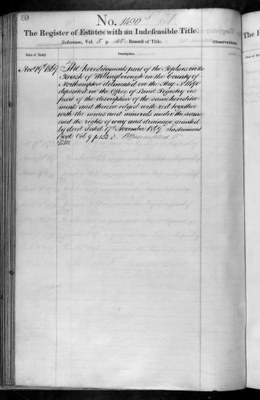 60
No. 1490
The Register of Estates with an Indefeasible Title.
Reference, Vol. 5 p. Record of Title.
Observations.
Date of Entry. Description.
Nov 19th 1867 The hereditaments part of the in the
Parish of Wellingborough in the County of
Northampton delineated on the Map
deposited in the Office of Land Registry as
part of the description of the same heredita-
ments and thereon edged with red together
with the mines and minerals under the same
and the rights of way and drainage granted
by deed dated 17th November 1867 Instrument
Book Vol. 9 p.